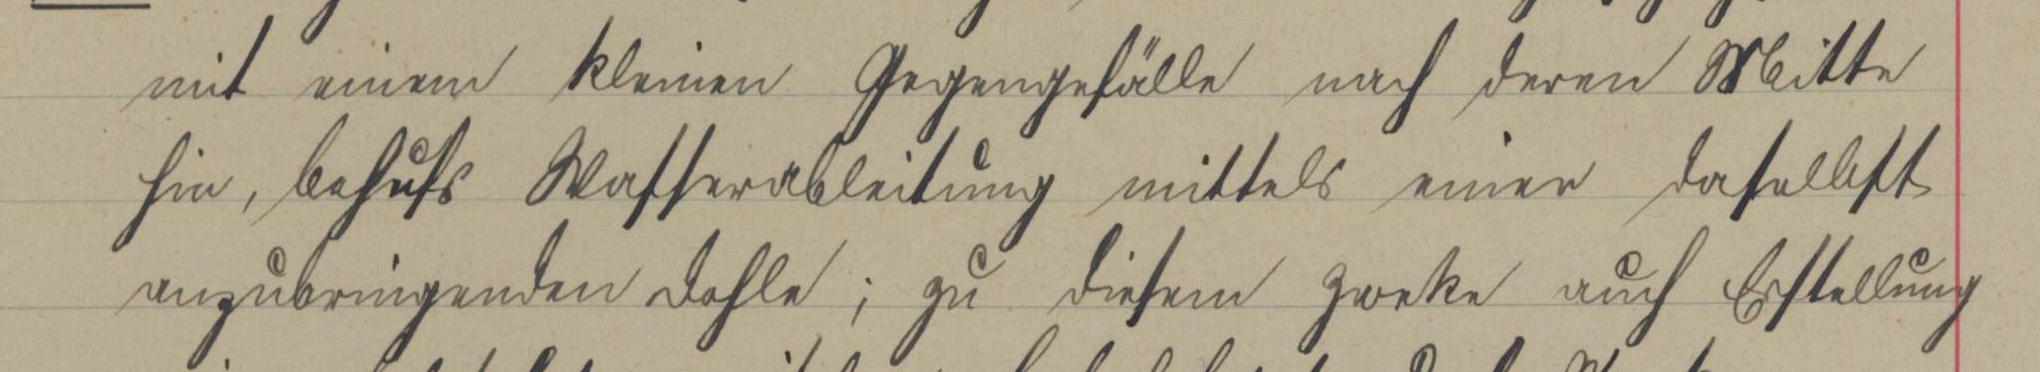 mit einem kleinen Gegengefälle nach deren Mitte
hin, behufs Wasserableitung mittels einer daselbst
anzubringenden Dohle; zu diesem Zweke auch Erstellung